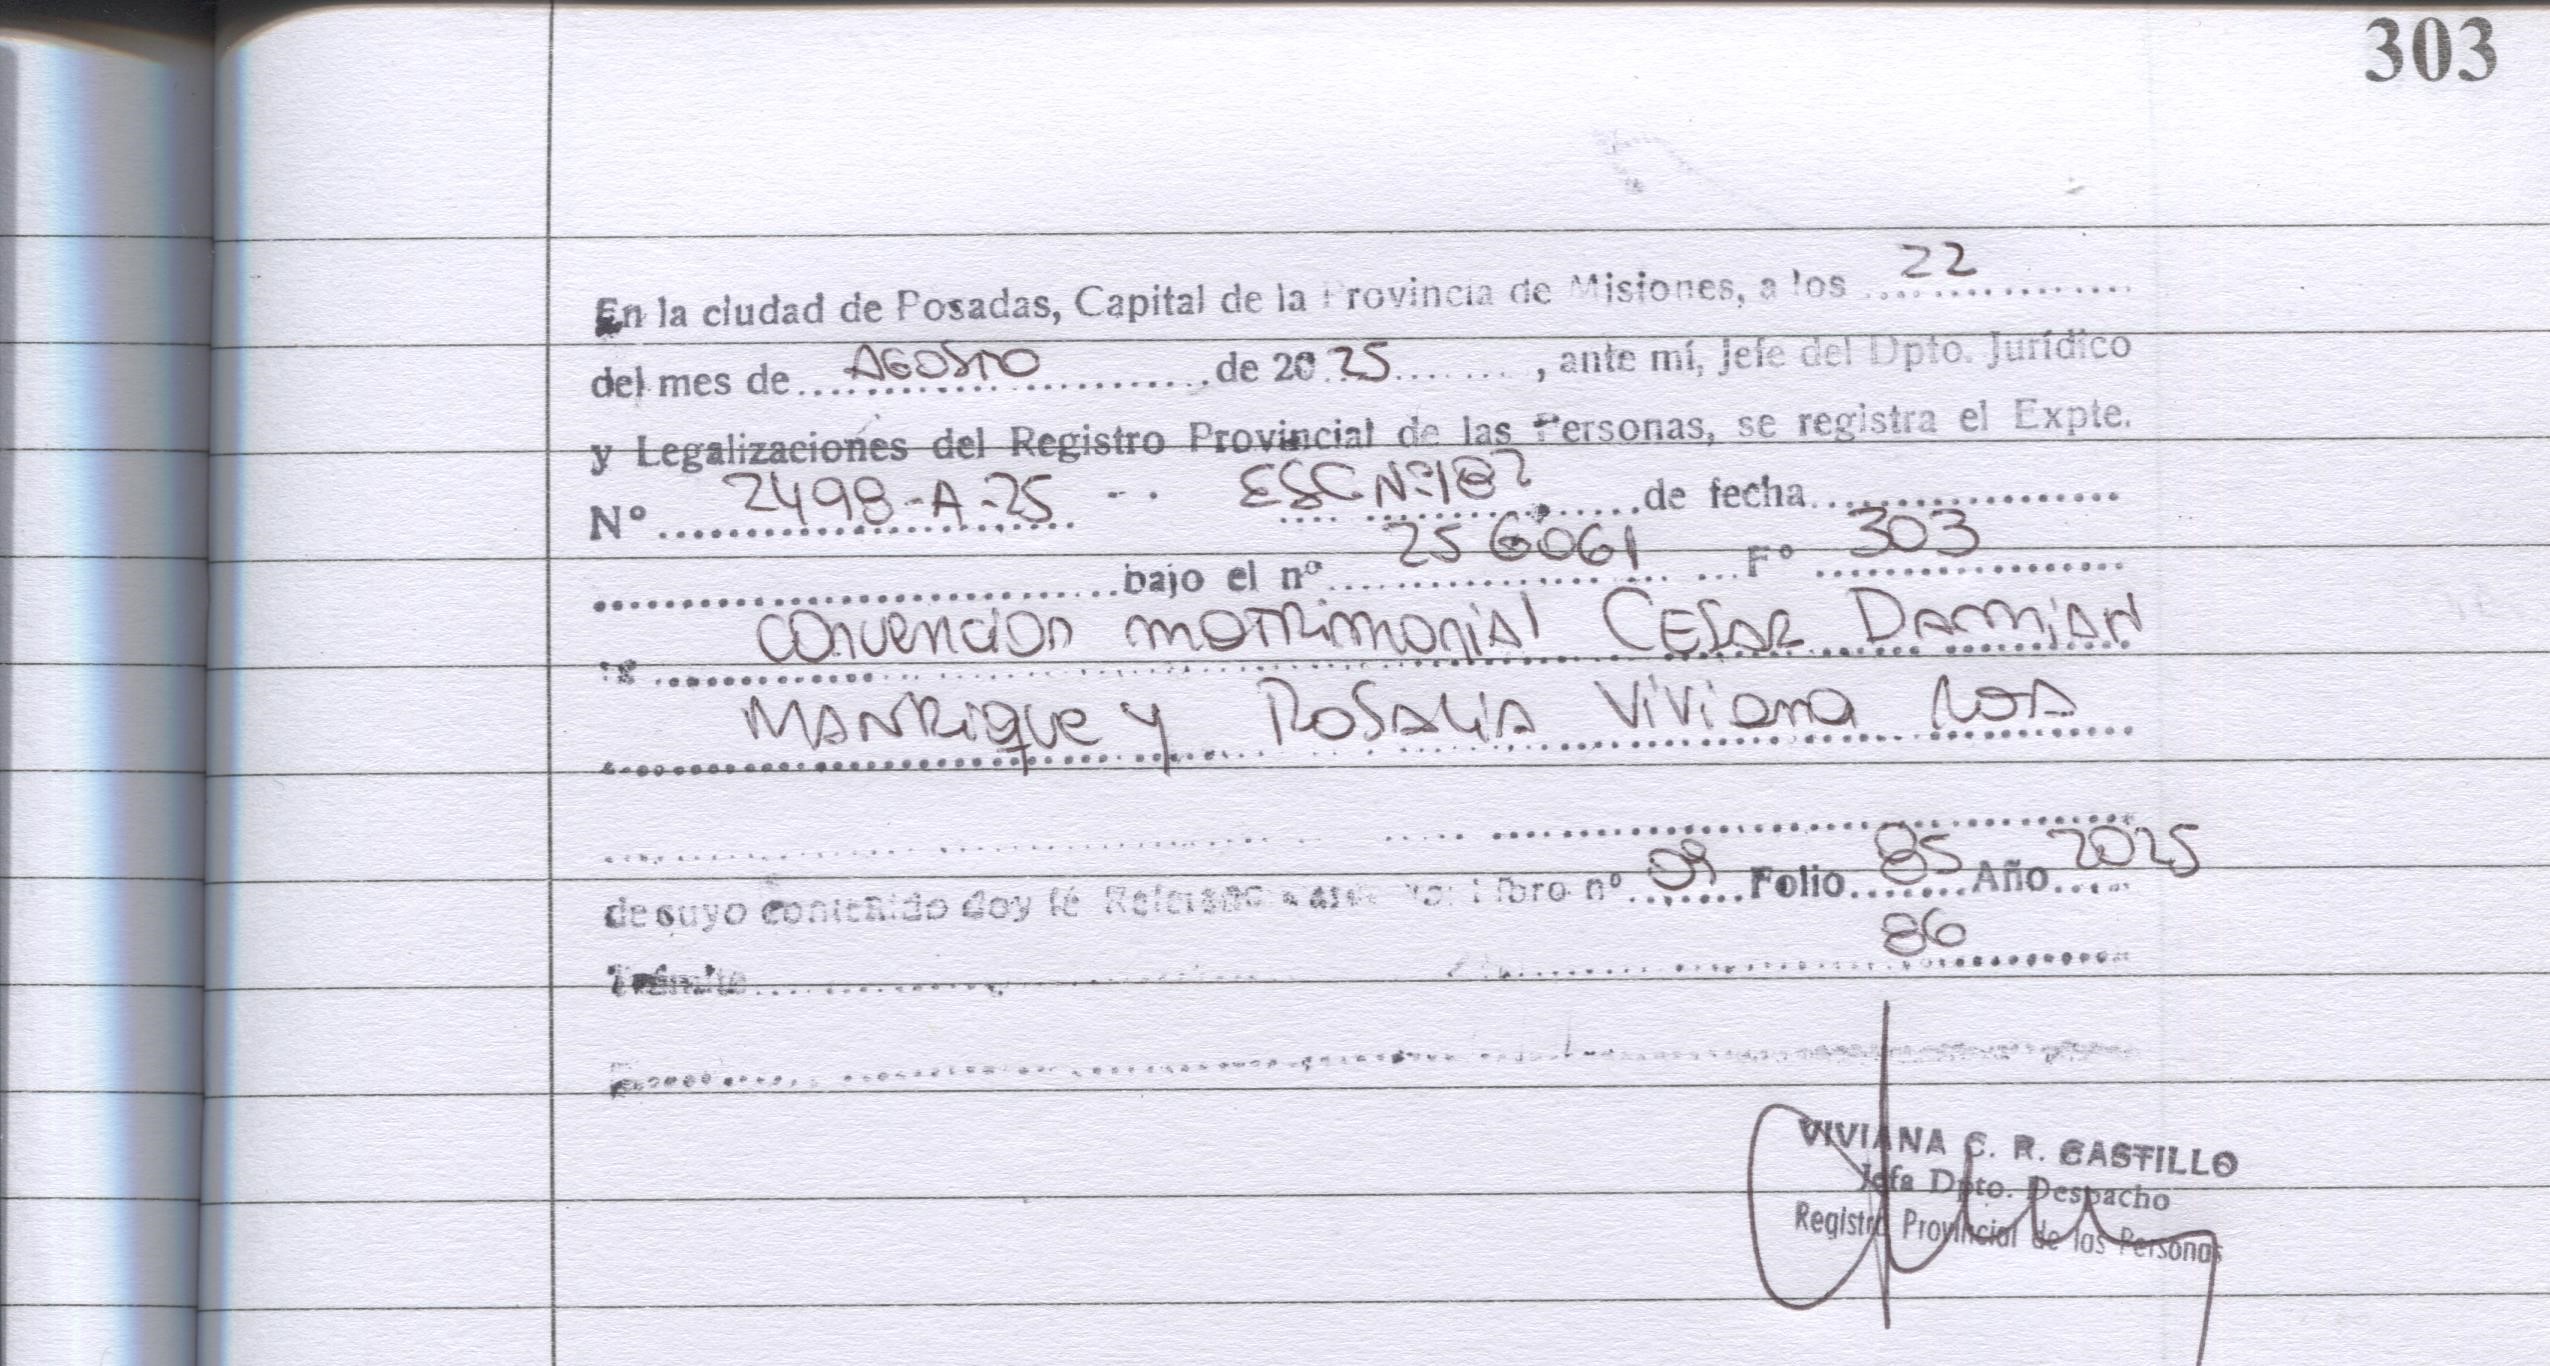 303
En la ciudad de Posadas, Capital de la Provincia de Misiones, a los 22
del mes de AGOSTO de 2025, ante mí, Jefe del Dpto. Jurídico
y Legalizaciones del Registro Provincial de las Personas, se registra el Expte.
Nº 2498-A-25 -- ESC Nº 187 de fecha
bajo el nº 256061 Fº 303
convencion matrimonial CESAR DAMIAN
MANRIQUE y ROSALIA Viviana
de cuyo contenido doy fé Libro nº 09 Folio 85 Año 2025
86
Trámite
VIVIANA C. R. CASTILLO
Jefa Dpto. Despacho
Registro Provincial de las Personas